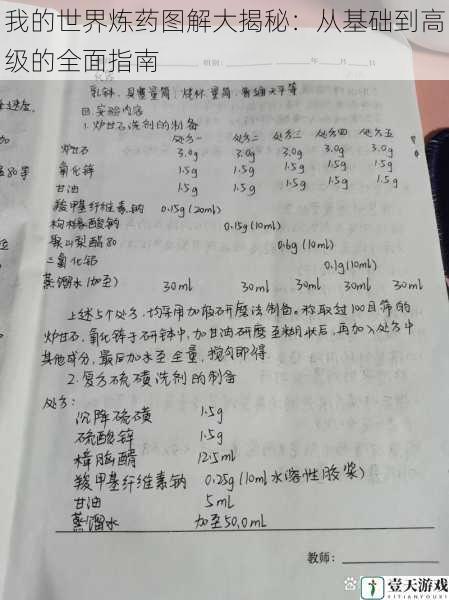 我的世界炼药图解大揭秘：从基础到高
级的全面指南
组别： 年 月 日
乳钵、具塞量筒、烧杯、量筒、普通天平等
四. 实验内容
1. 炉甘石洗剂的制备
处方一 处方二 处方三 处方四 处方五
炉甘石 3.0g 3.0g 3.0g 3.0g 3.0g
氧化锌 1.5g 1.5g 1.5g 1.5g 1.5g
甘油 1.5g 1.5g 1.5g 1.5g 1.5g
羧甲基纤维素钠 0.15g (20ml)
枸橼酸钠 0.15g (10ml)
聚山梨酯80 0.6g (10ml)
三氯化铝 0.1g (10ml)
蒸馏水 加至 30ml 30ml 30ml 30ml 30ml
上述5个处方，均采用加液研磨法制备。称取过100目筛的
炉甘石，氧化锌于研钵中，加甘油研磨至糊状后，再加入处方中
其他成分，最后加水至全量，搅匀即得
2. 复方硫磺洗剂的制备
处方：
沉降硫磺 1.5g
硫酸锌 1.5g
樟脑醑 12.5ml
羧甲基纤维素钠 0.25g (10ml水溶性胶浆)
甘油 5ml
蒸馏水 加至50.0ml
教师：
壹天游戏
YITIANYOUXI